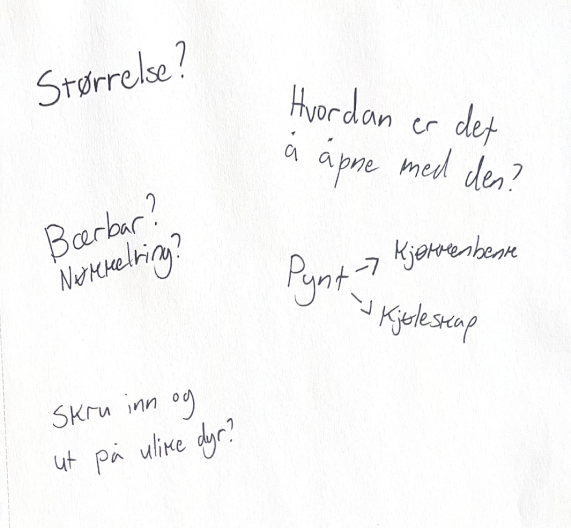 Størrelse?
Hvordan er det
å åpne med den?
Bærbar?
Nøkkelring?
Pynt → Kjøkkenbenk
↘ Kjøleskap
Skru inn og
ut på ulike dyr?